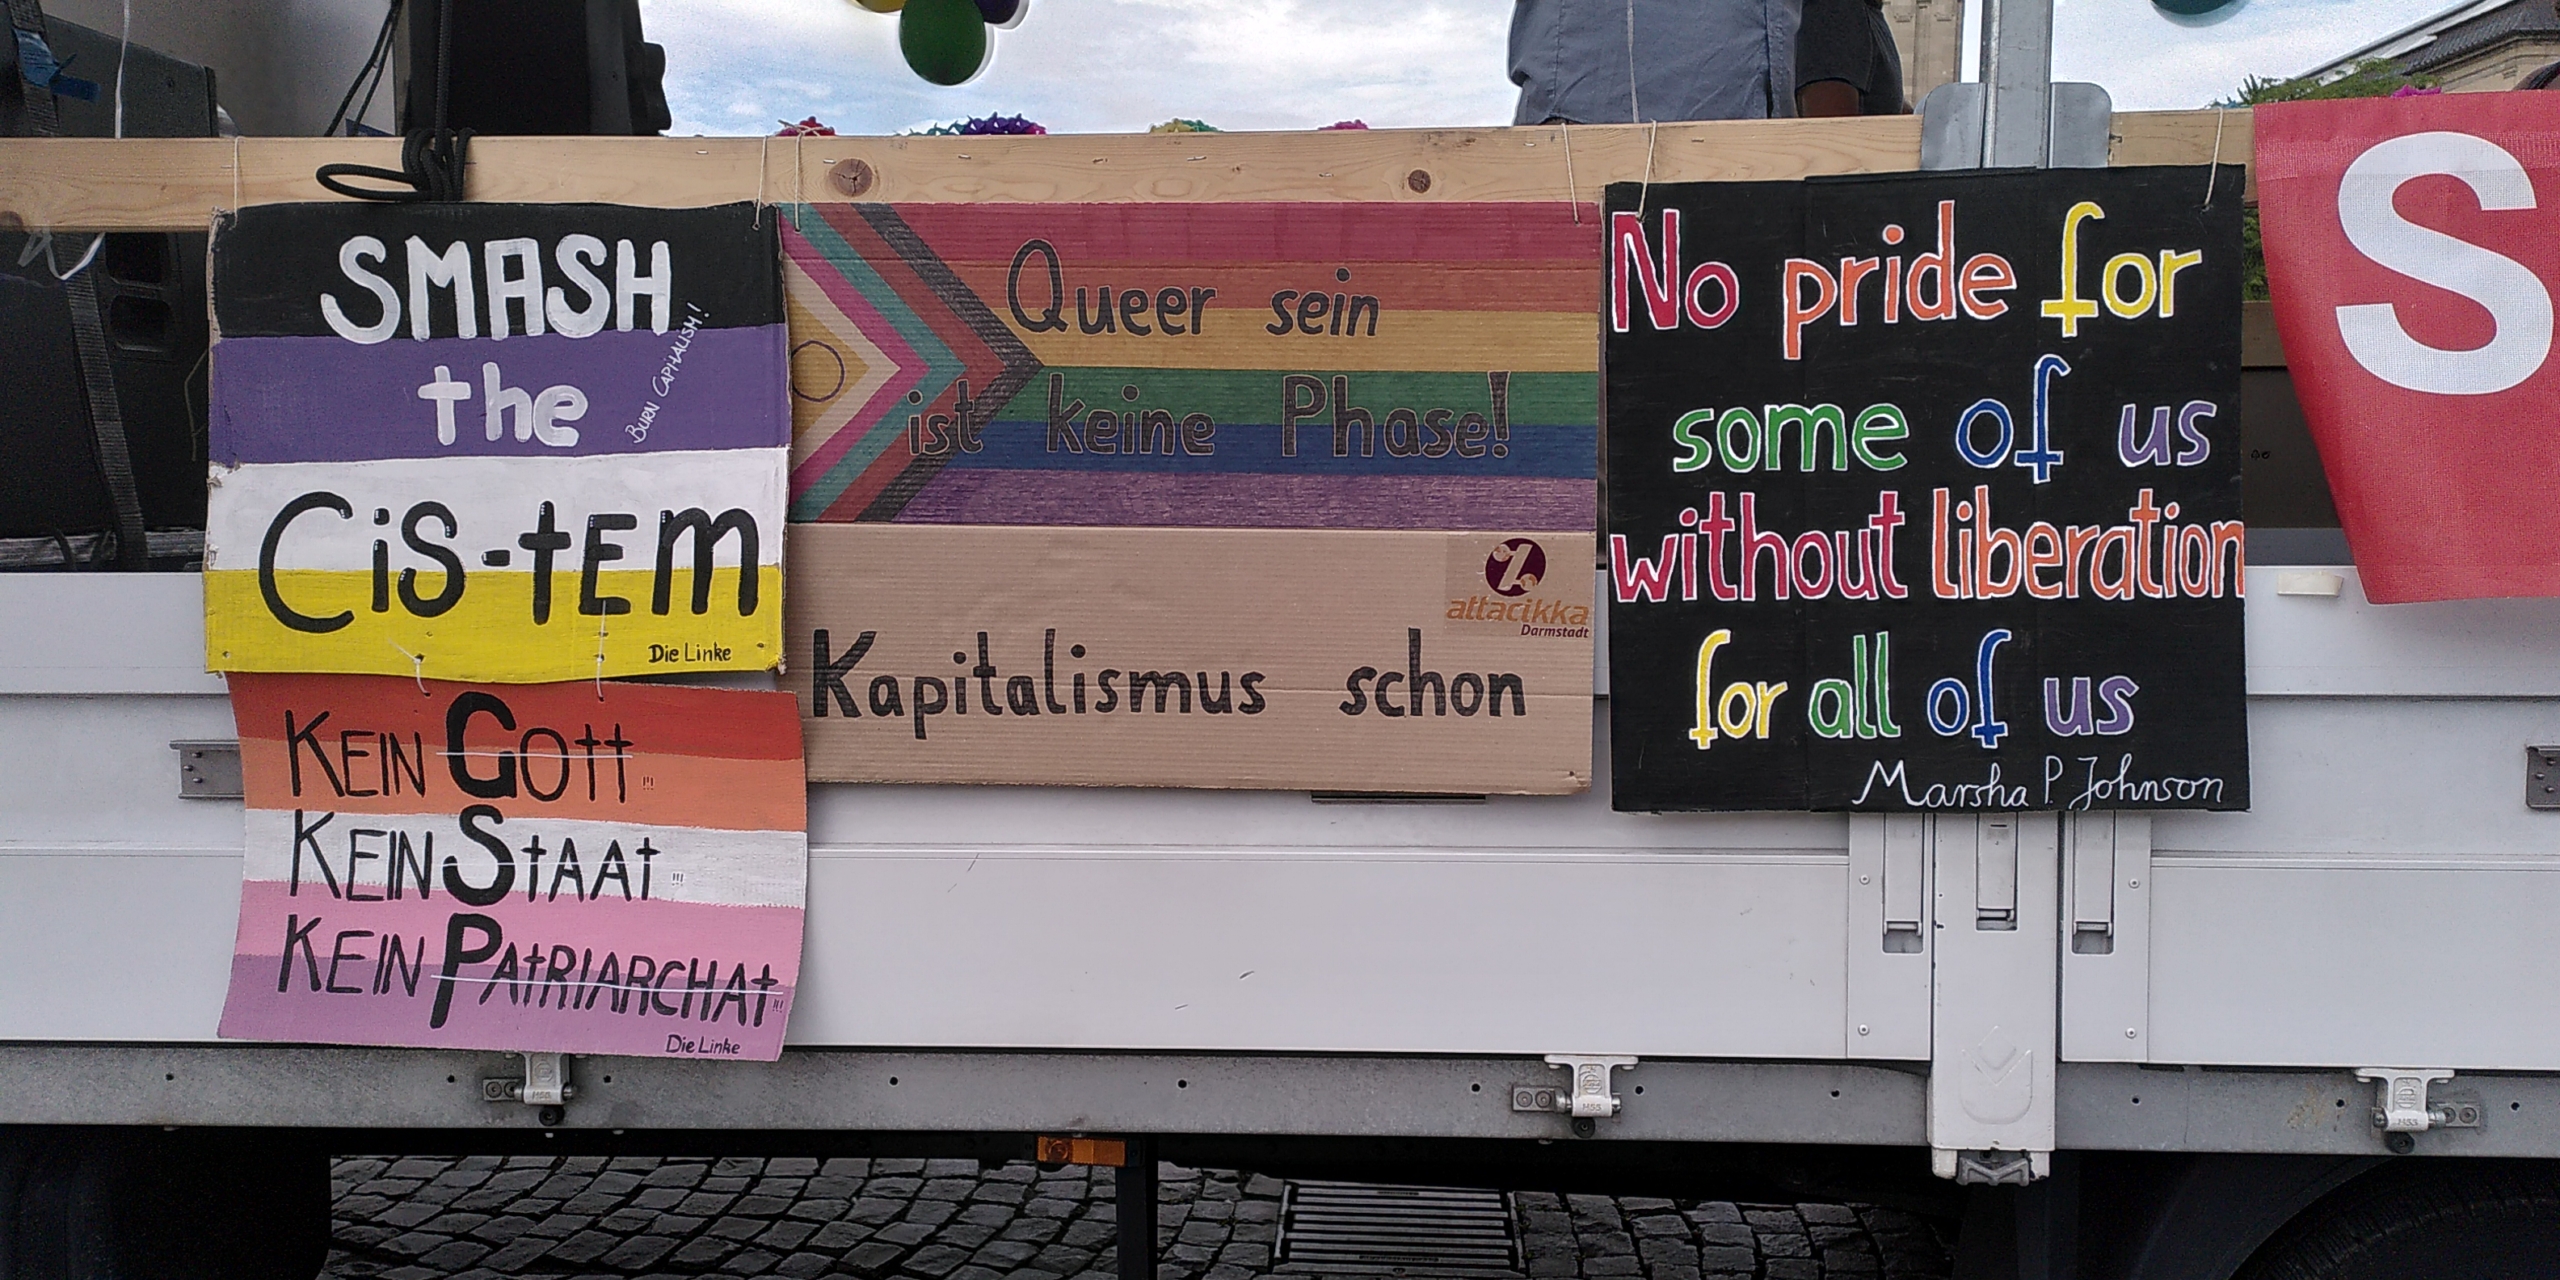 SMASH
the
BURN CAPITALISM!
CiS-tEM
Die Linke
KEIN GOtt !!!
KEIN StAAt !!!
KEIN PAtRIARCHAt !!!
Die Linke
Queer sein
ist keine Phase!
attacikka
Darmstadt
Kapitalismus schon
No pride for
some of us
without liberation
for all of us
Marsha P. Johnson
S
HSS
HSS
HSS